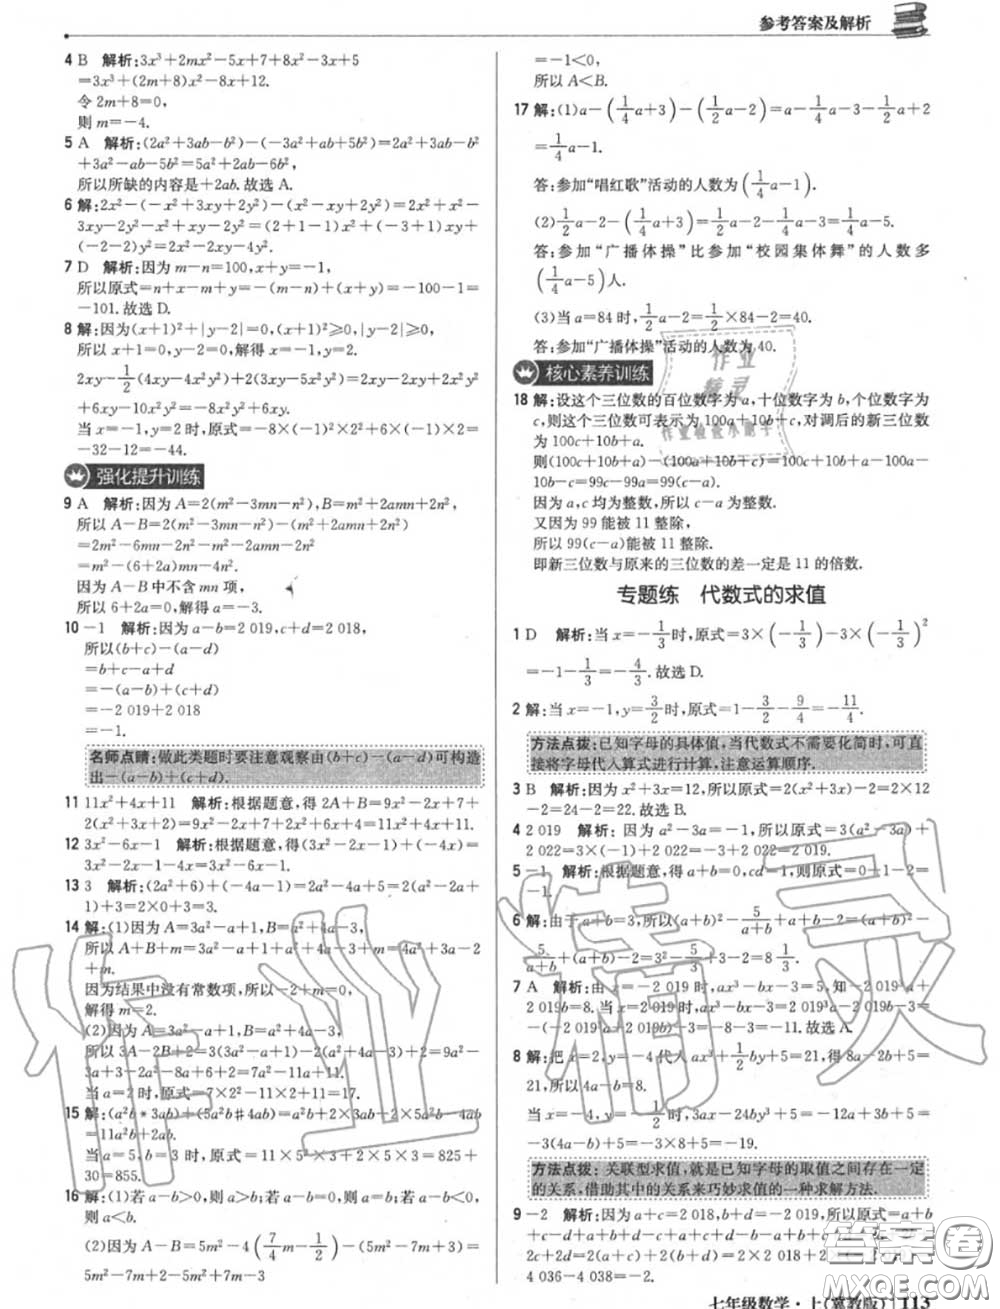 参考答案及解析
4 B 解析:3x³+2mx²-5x+7+8x²-3x+5
=3x³+(2m+8)x²-8x+12.
令 2m+8=0,
则 m=-4.
5 A 解析:(2a²+3ab-b²)-(-3a²+ab+5b²)=2a²+3ab-b²
+3a²-ab-5b²=5a²+2ab-6b²,
所以所缺的内容是+2ab.故选 A.
6 解:2x²-(-x²+3xy+2y²)-(x²-xy+2y²)=2x²+x²-
3xy-2y²-x²+xy-2y²=(2+1-1)x²+(-3+1)xy+
(-2-2)y²=2x²-2xy-4y².
7 D 解析:因为 m-n=100,x+y=-1,
所以原式=n+x-m+y=-(m-n)+(x+y)=-100-1=
-101.故选 D.
8 解:因为(x+1)²+|y-2|=0,(x+1)²≥0,|y-2|≥0,
所以 x+1=0,y-2=0,解得 x=-1,y=2.
2xy-1/2(4xy-8x²y²)+2(3xy-5x²y²)=2xy-2xy+4x²y²
+6xy-10x²y²=-6x²y²+6xy.
强化提升训练
9 A 解析:因为 A=2(m²-3mn-n²),B=m²+2amn+2n²,
所以 A-B=2(m²-3mn-n²)-(m²+2amn+2n²)
=2m²-6mn-2n²-m²-2amn-2n²
=m²-(6+2a)mn-4n².
因为 A-B 中不含 mn 项,
所以 6+2a=0,解得 a=-3.
10 -1 解析:因为 a-b=2 019,c+d=2 018,
所以(b+c)-(a-d)
=b+c-a+d
=-(a-b)+(c+d)
=-2 019+2 018
=-1.
名师点睛:做此类题时要注意观察由(b+c)-(a-d)可构造
出-(a-b)+(c+d).
11 11x²+4x+11 解析:根据题意,得 2A+B=9x²-2x+7+
2(x²+3x+2)=9x²-2x+7+2x²+6x+4=11x²+4x+11.
12 3x²-6x-1 解析:根据题意,得(3x²-2x-1)+(-4x)=
3x²-2x-1-4x=3x²-6x-1.
13 3 解析:(2a²+6)+(-4a-5)+2=2a²-4a+3=2(a²-2a+
1)+1=2×0+3=3.
14 解:(1)因为 A=3a²-a+1,B=a²+4a-3,
所以 A+B+m=3a²-a+1+a²+4a-3+m=4a²+3a-2
+m.
因为结果中没有常数项,所以-2+m=0,
所以 m=2.
(2)因为 A=3a²-a+1,B=a²+4a-3,
当 a=2 时,原式=7×2²-11×2+11=17.
15 解:(a²b*3ab)+(5a²b#4ab)=
=11a²b+2ab.
当 a=5,b=3 时,原式=11×5²×3+2×5×3=825+
30=855.
16 解:(1)若 a-b>0,则 a>b;若 a-b=0,则 a=b;若 a-b<0,
则 a<b.
(2)因为 A-B=5m²-4(7/4m-1/2)-(5m²-7m+3)=
5m²-7m+2-5m²+7m-3
=-1<0,
所以 A<B.
17 解:(1)a-(1/4a+3)-(1/2a-2)=a-1/4a-3-1/2a+2
=1/4a-1.
答:参加“唱红歌”活动的人数为(1/4a-1).
(2)1/2a-2-(1/4a+3)=1/2a-2-1/4a-3=1/4a-5.
答:参加“广播体操”比参加“校园集体舞”的人数多
(1/4a-5).
(3)当 a=84 时,1/2a-2=1/2×84-2=40.
答:参加“广播体操”活动的人数为 40.
核心素养训练
18 解:设这个三位数的百位数字为 a,十位数字为 b,个位数字为
c,则这个三位数可表示为 100a+10b+c,对调后的新三位数
为 100c+10b+a.
则(100c+10b+a)-(100a+10b+c)=100c+10b+a-100a-
10b-c=99c-99a=99(c-a).
因为 a,c 均为整数,所以 c-a 为整数.
又因为 99 能被 11 整除,
所以 99(c-a)能被 11 整除.
即新三位数与原来的三位数的差一定是 11 的倍数.
专题练 代数式的求值
1 D 解析:当 x=-1/3 时,原式=3×(-1/3)-3×(-1/3)²
=-1-1/3=-4/3.故选 D.
2 解:当 x=-1,y=3/2 时,原式=1-3/2-9/4=-11/4.
方法点拨:已知字母的具体值,当代数式不需要化简时,可直
接将字母代入算式进行计算,注意运算顺序.
3 B 解析:因为 x²+3x=12,所以原式=2(x²+3x)-2=2×12
-2=24-2=22.故选 B.
4 2 019 解析:因为 a²-3a=-1,所以原式=3(a²-3a)+
2 022=3×(-1)+2 022=-3+2 022=2 019.
5 -1 解析:根据题意,得 a+b=0,cd=1,则原式=0+1-2=
-1.
6 解:由于 a+b=3,所以(a+b)²-5/(a+b)+a+b-2=(a+b)²
-5/(a+b)+(a+b)-2=3²-5/3+3-2=
7 A 解析:由 x=-2 019 时,ax³-bx-3=5,
8 解:把 x=2,y=-4 代入 ax³+1/2by+5=21,得 8a-2b+5=
21,所以 4a-b=8.
(-5)=-3(4a-b)+5=-3×8+5=-19.
方法点拨:关联型求值,就是已知字母的取值之间存在一定
的关系,借助其中的关系来巧妙求值的一种求解方法.
9 -2 解析:因为 a+c=2 018,b+d=-2 019,所以原式=a+b
4 036-4 038=-2.
七年级数学·上(冀教版) 113
作业精灵
答案卷